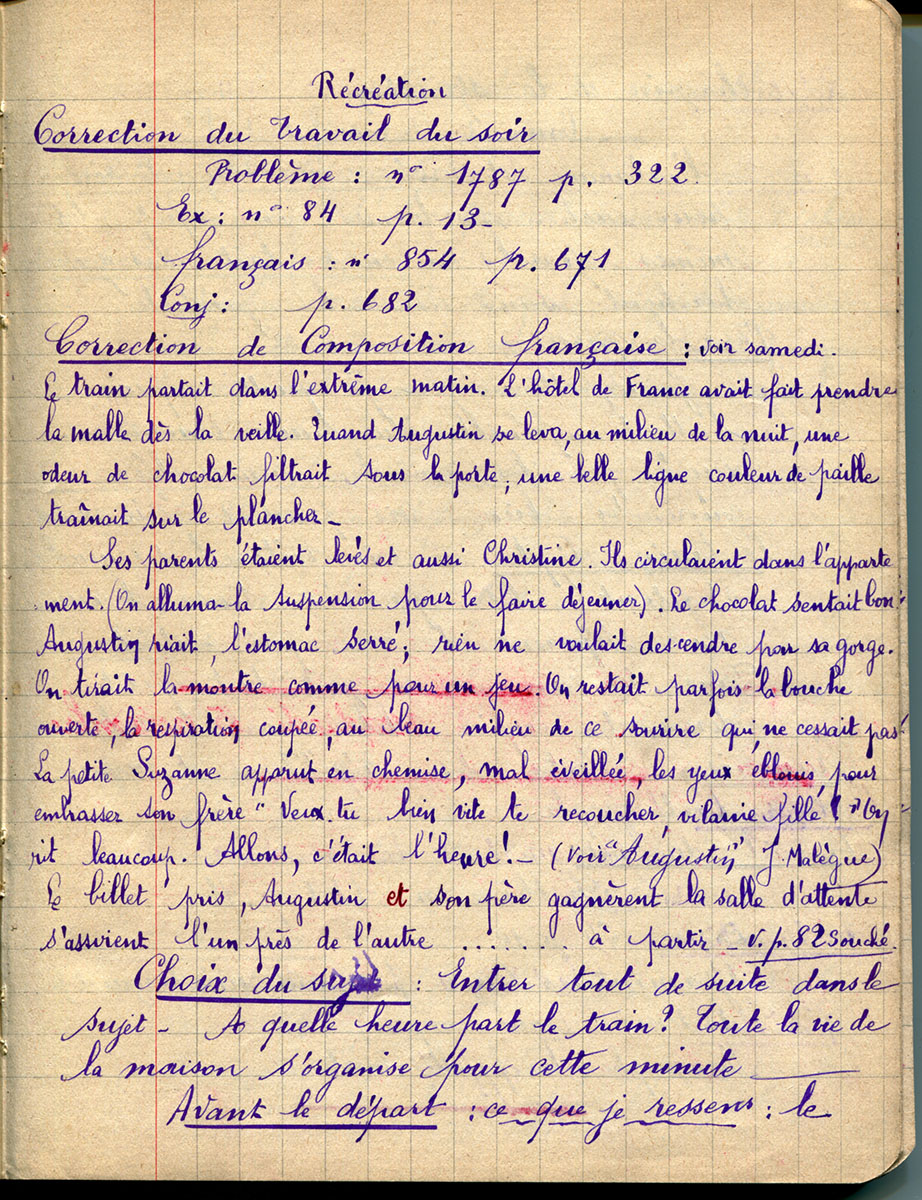 Récréation
Correction du travail du soir
Problème : n° 1787 p. 322
Ex : n° 84 p. 13 -
français : n° 854 p. 671
Conj : p. 682
Correction de Composition française : voir samedi.
Le train partait dans l'extrême matin. L'hôtel de France avait fait prendre
la malle dès la veille. Quand Augustin se leva, au milieu de la nuit, une
odeur de chocolat filtrait sous la porte, une belle ligne couleur de paille
traînait sur le plancher -
Ses parents étaient levés et aussi Christine. Ils circulaient dans l'apparte
ment. (On alluma la suspension pour le faire déjeuner). Le chocolat sentait bon.
Augustin riait, l'estomac serré ; rien ne voulait descendre par sa gorge.
On tirait la montre comme pour un jeu. On restait parfois la bouche
ouverte, la respiration coupée, au beau milieu de ce sourire qui ne cessait pas.
La petite Suzanne apparut en chemise, mal éveillée, les yeux éblouis, pour
embrasser son frère " Veux-tu bien vite te recoucher, vilaine fille ! " On
rit beaucoup. Allons, c'était l'heure ! - (Voir "Augustin" J. Malègue)
Le billet pris, Augustin et son père gagnèrent la salle d'attente
s'assirent l'un près de l'autre ....... à partir - V. p. 82 Souché.
Choix du sujet : Entrer tout de suite dans le
sujet - A quelle heure part le train ? Toute la vie de
la maison s'organise pour cette minute
Avant le départ : ce que je ressens : le